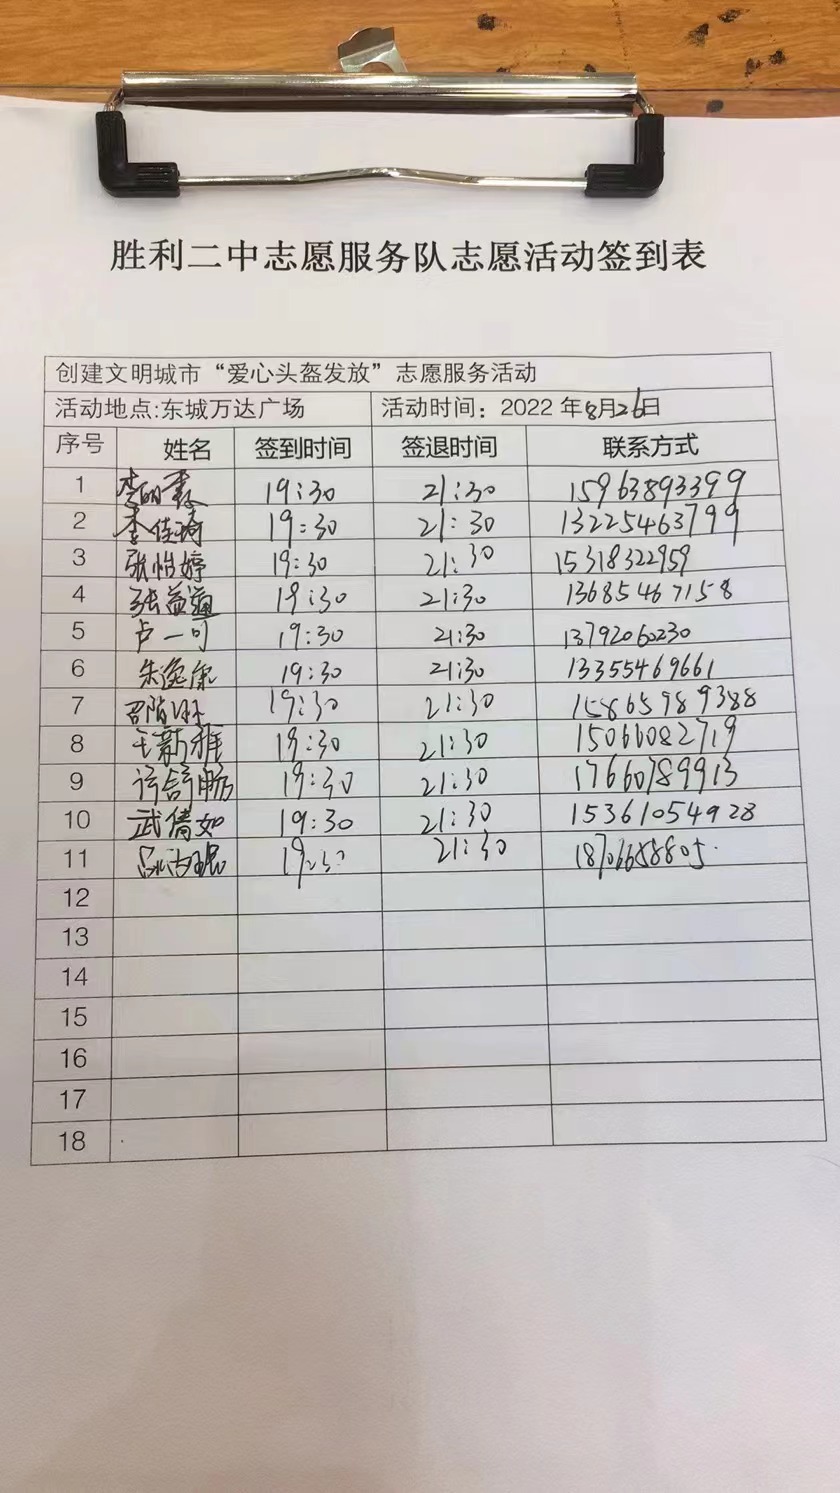 胜利二中志愿服务队志愿活动签到表
创建文明城市“爱心头盔发放”志愿服务活动
活动地点:东城万达广场 活动时间：2022年8月26日
序号 姓名 签到时间 签退时间 联系方式
1 李明森 19:30 21:30 15963893399
2 李佳琦 19:30 21:30 13225463799
3 张怡婷 19:30 21:30 15318322959
4 张益通 19:30 21:30 13685467158
5 卢一可 19:30 21:30 13792060230
6 朱逸康 19:30 21:30 13355469661
7 19:30 21:30 15865989388
8 王新雅 19:30 21:30 15066082719
9 19:30 21:30 17660789913
10 武倩如 19:30 21:30 15361054928
11 19:30 21:30 18706688805
12
13
14
15
16
17
18